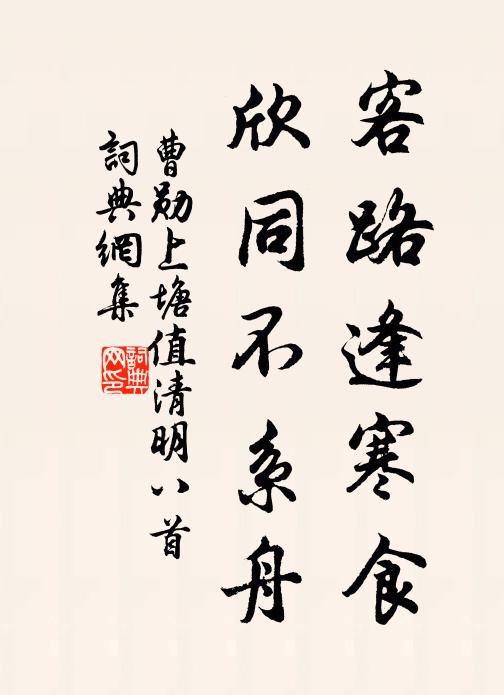 客路逢寒食
欣同不系舟
曹勋上塘值清明八首
詞典網集
詞典網印